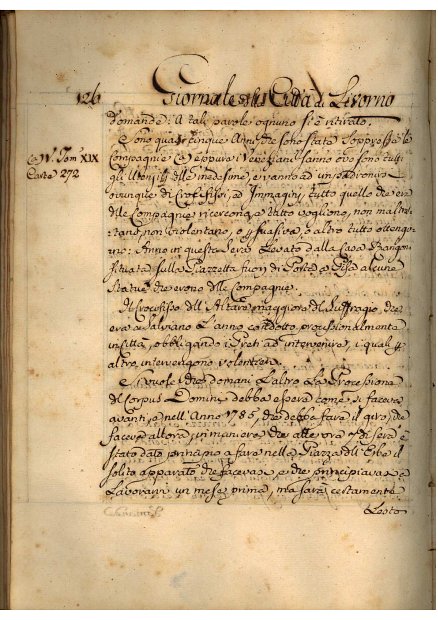 126 Giornale della Città di Livorno
domande: A tali parole ognuno si è ritirato.
Sono quasi cinque Anni che sono state soppresse le
(a) V. Tom XIX
Carte 272
Compagnie (a) eppure i Veneziani sanno ove sono tutti
gli Utensili delle medesime, e vanno
ovunque di Crocifissi, ed Immagini, tutto quello che era
delle Compagnie ricercono, e tutto vogliono, non maltrat
tano, non violentano, o persuasive, o altro tutto ottengo
no: Anno in questa sera Levato dalla Casa
situata sulla Piazzetta fuori di Porta a Pisa alcune
Statue che erono delle Compagnie.
Il Crocifisso dell' Altare maggiore del Suffragio che
era a Salviano l'anno condotto processionalmente
in Città, obbligando i Preti ad intervenire, i quali per
altro intervengono volentieri.
Si vuole che domani l'altro La Processione
del Corpus Domini debba essere come si faceva
avanti, e nell'Anno 1785, che debba fare il giro, che
faceva allora, in maniera che alle ore 7 di sera è
stato dato principio a fare nella Piazza dell' Erbe il
solito apparato che faceva, e che principiava a
Lavorarvi un mese prima, ma sarà certamente
Lesto